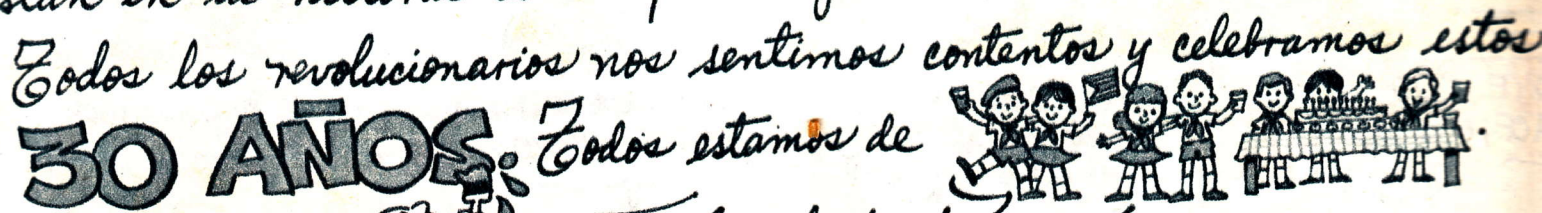 Todos los revolucionarios nos sentimos contentos y celebramos estos
30 AÑOS. Todos estamos de